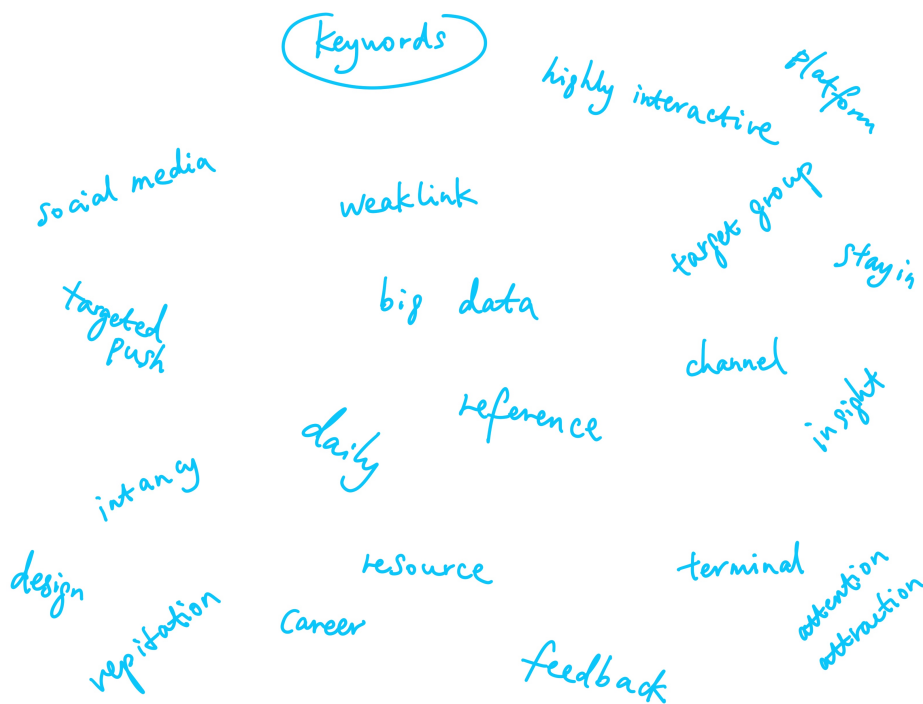 keywords
highly interactive
platform
social media
weaklink
target group
stay in
targeted
push
big data
channel
insight
reference
daily
intancy
design
resource
terminal
attention
attraction
repitation
career
feedback